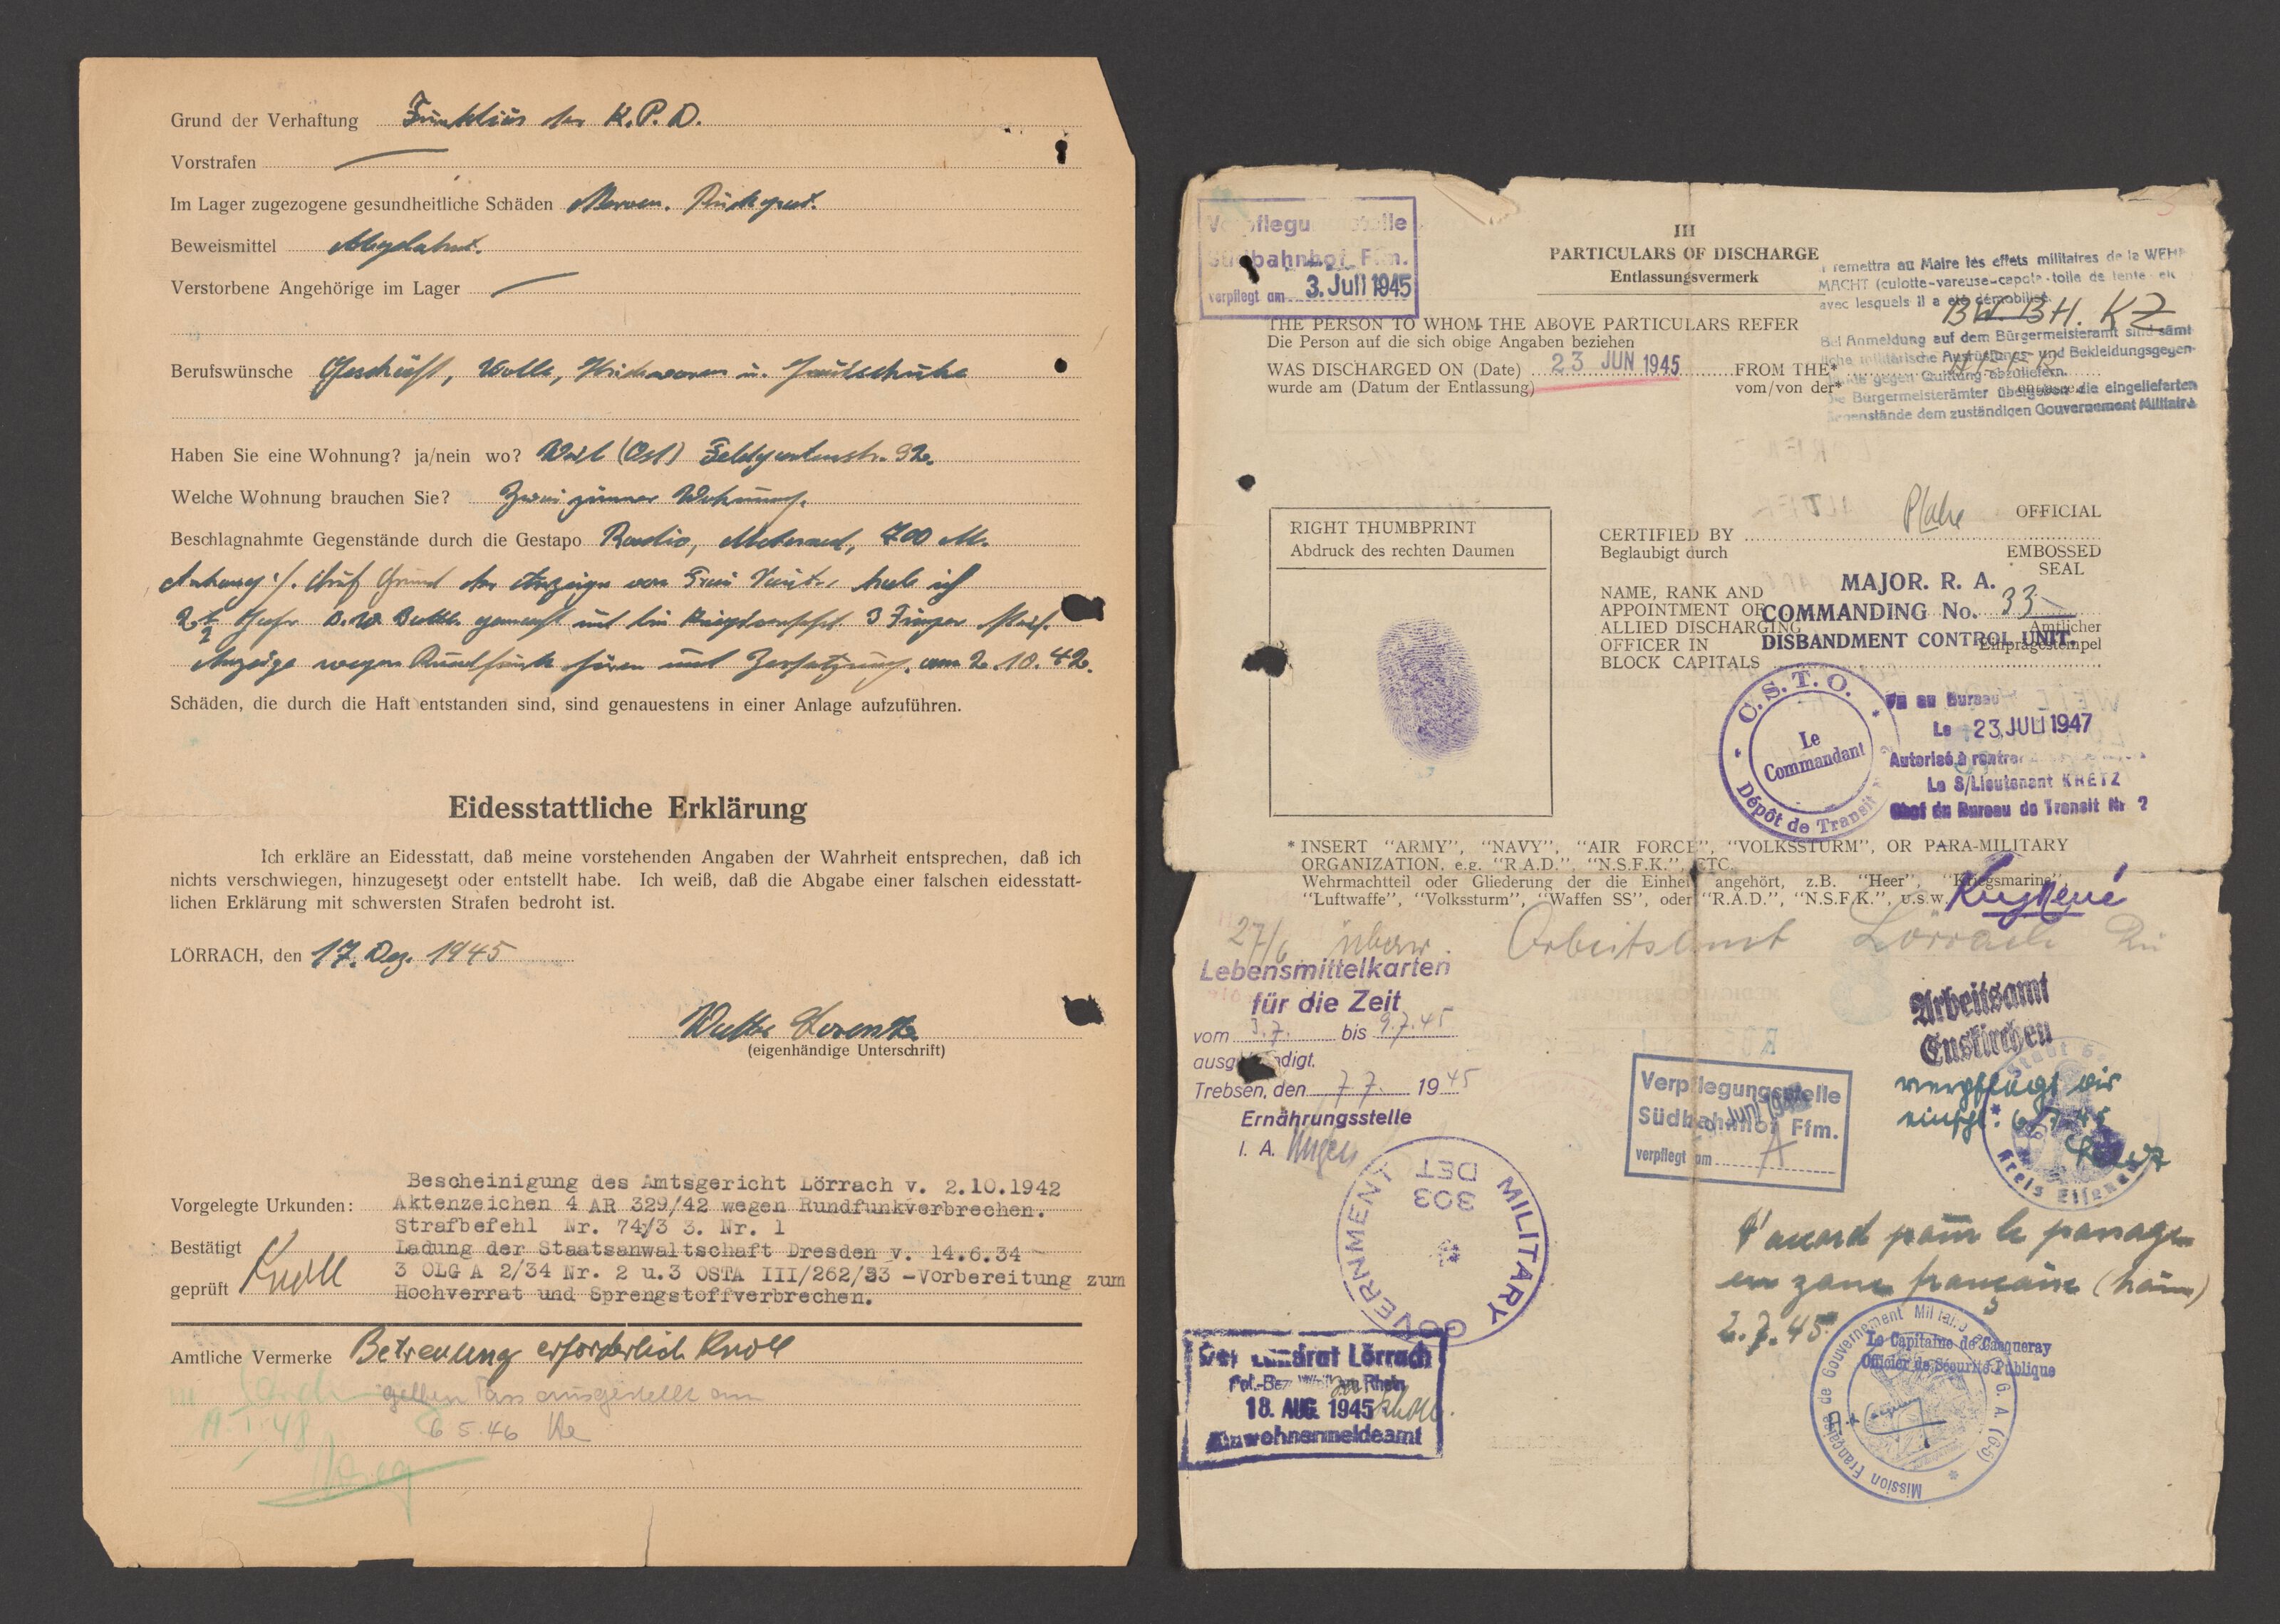 Grund der Verhaftung Funktionär der K.P.D.
Vorstrafen
Im Lager zugezogene gesundheitliche Schäden Nerven.
Beweismittel
Verstorbene Angehörige im Lager
Berufswünsche Geschäft, Wolle, u.
Haben Sie eine Wohnung? ja/nein wo? Weil (Ost) Feldgartenstr. 92.
Welche Wohnung brauchen Sie? Zwei zimmer Wohnung.
Beschlagnahmte Gegenstände durch die Gestapo Radio, Motorrad, 700 M.
Anhang :/. Auf Grund der Anzeige von Frau habe ich
2½ Jahr gemacht und bin 3 Finger steif.
Anzeige wegen Rundfunk hören und Zersetzung. am 2.10.42.
Schäden, die durch die Haft entstanden sind, sind genauestens in einer Anlage aufzuführen.
Eidesstattliche Erklärung
Ich erkläre an Eidesstatt, daß meine vorstehenden Angaben der Wahrheit entsprechen, daß ich
nichts verschwiegen, hinzugesetzt oder entstellt habe. Ich weiß, daß die Abgabe einer falschen eidesstatt-
lichen Erklärung mit schwersten Strafen bedroht ist.
LÖRRACH, den 17. Dez. 1945
(eigenhändige Unterschrift)
Bescheinigung des Amtsgericht Lörrach v. 2.10.1942
Vorgelegte Urkunden: Aktenzeichen 4 AR 329/42 wegen Rundfunkverbrechen.
Strafbefehl Nr. 74/3 3. Nr. 1
Bestätigt Ladung der Staatsanwaltschaft Dresden v. 14.6.34 -
geprüft Knoll 3 OLG A 2/34 Nr. 2 u.3 OSTA III/262/33 -Vorbereitung zum
Hochverrat und Sprengstoffverbrechen.
Amtliche Vermerke Betreuung erforderlich Knoll
gelben Pass ausgestellt am
6 5.46
Verpflegungsstelle
Südbahnhof Ffm.
verpflegt am 3. Juli 1945
III
PARTICULARS OF DISCHARGE
Entlassungsvermerk
remettra au Maire les effets militaires de la WEHR
MACHT (culotte-vareuse-capote-toile de tente-etc
avec lesquels il a été démobilisé.
BW. BH. KZ
Bei Anmeldung auf dem Bürgermeisteramt sind sämt
liche militärische Ausrüstungs- und Bekleidungsgegen-
gegen Quittung abzuliefern.
Bürgermeisterämter übergeben die eingelieferten
Gegenstände dem zuständigen Gouvernement Militaire
THE PERSON TO WHOM THE ABOVE PARTICULARS REFER
Die Person auf die sich obige Angaben beziehen
WAS DISCHARGED ON (Date) 23 JUN 1945 FROM THE*
wurde am (Datum der Entlassung) vom/von der*
RIGHT THUMBPRINT
Abdruck des rechten Daumen
CERTIFIED BY
Beglaubigt durch
OFFICIAL
EMBOSSED
SEAL
Amtlicher
Einprägestempel
NAME, RANK AND
APPOINTMENT OF
ALLIED DISCHARGING
OFFICER IN
BLOCK CAPITALS
MAJOR. R. A.
COMMANDING No. 33
DISBANDMENT CONTROL UNIT.
C.S.T.O.
Le
Commandant
Dépôt de Transit
Vu au Bureau
Le 23. JULI 1947
Autorisé à rentrer
Le S/Lieutenant KRETZ
Chef du Bureau de Transit Nr 2
* INSERT "ARMY", "NAVY", "AIR FORCE", "VOLKSSTURM", OR PARA-MILITARY
ORGANIZATION, e.g. "R.A.D.", "N.S.F.K.", ETC.
Wehrmachtteil oder Gliederung der die Einheit angehört, z.B. "Heer", "Kriegsmarine",
"Luftwaffe", "Volkssturm", "Waffen SS", oder "R.A.D.", "N.S.F.K.", u.s.w.
27/6 überw. Arbeitsamt Lörrach
Lebensmittelkarten
für die Zeit
vom 3.7. bis 9.7.45
ausgehändigt.
Trebsen, den 7 7. 1945
Ernährungsstelle
I. A.
Arbeitsamt
Euskirchen
verpflegt bis
einschl. 6/7.45
Verpflegungsstelle
Südbahnhof Ffm.
verpflegt am
MILITARY GOVERNMENT
303
DET
Der Landrat Lörrach
Pol.-Bez. Weil am Rhein
18. AUG. 1945
Einwohnermeldeamt
D'accord pour le passage
en zone française
2.7.45.
Mission Française de Gouvernement Militaire G. A. (G-5)
Le Capitaine de Cacqueray
Officier de Sécurité Publique